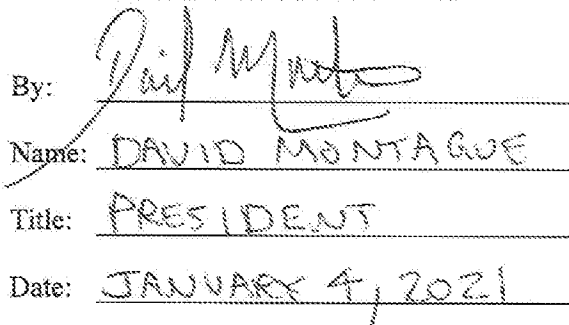 By:
Name: DAVID MONTAGUE
Title: PRESIDENT
Date: JANUARY 4, 2021